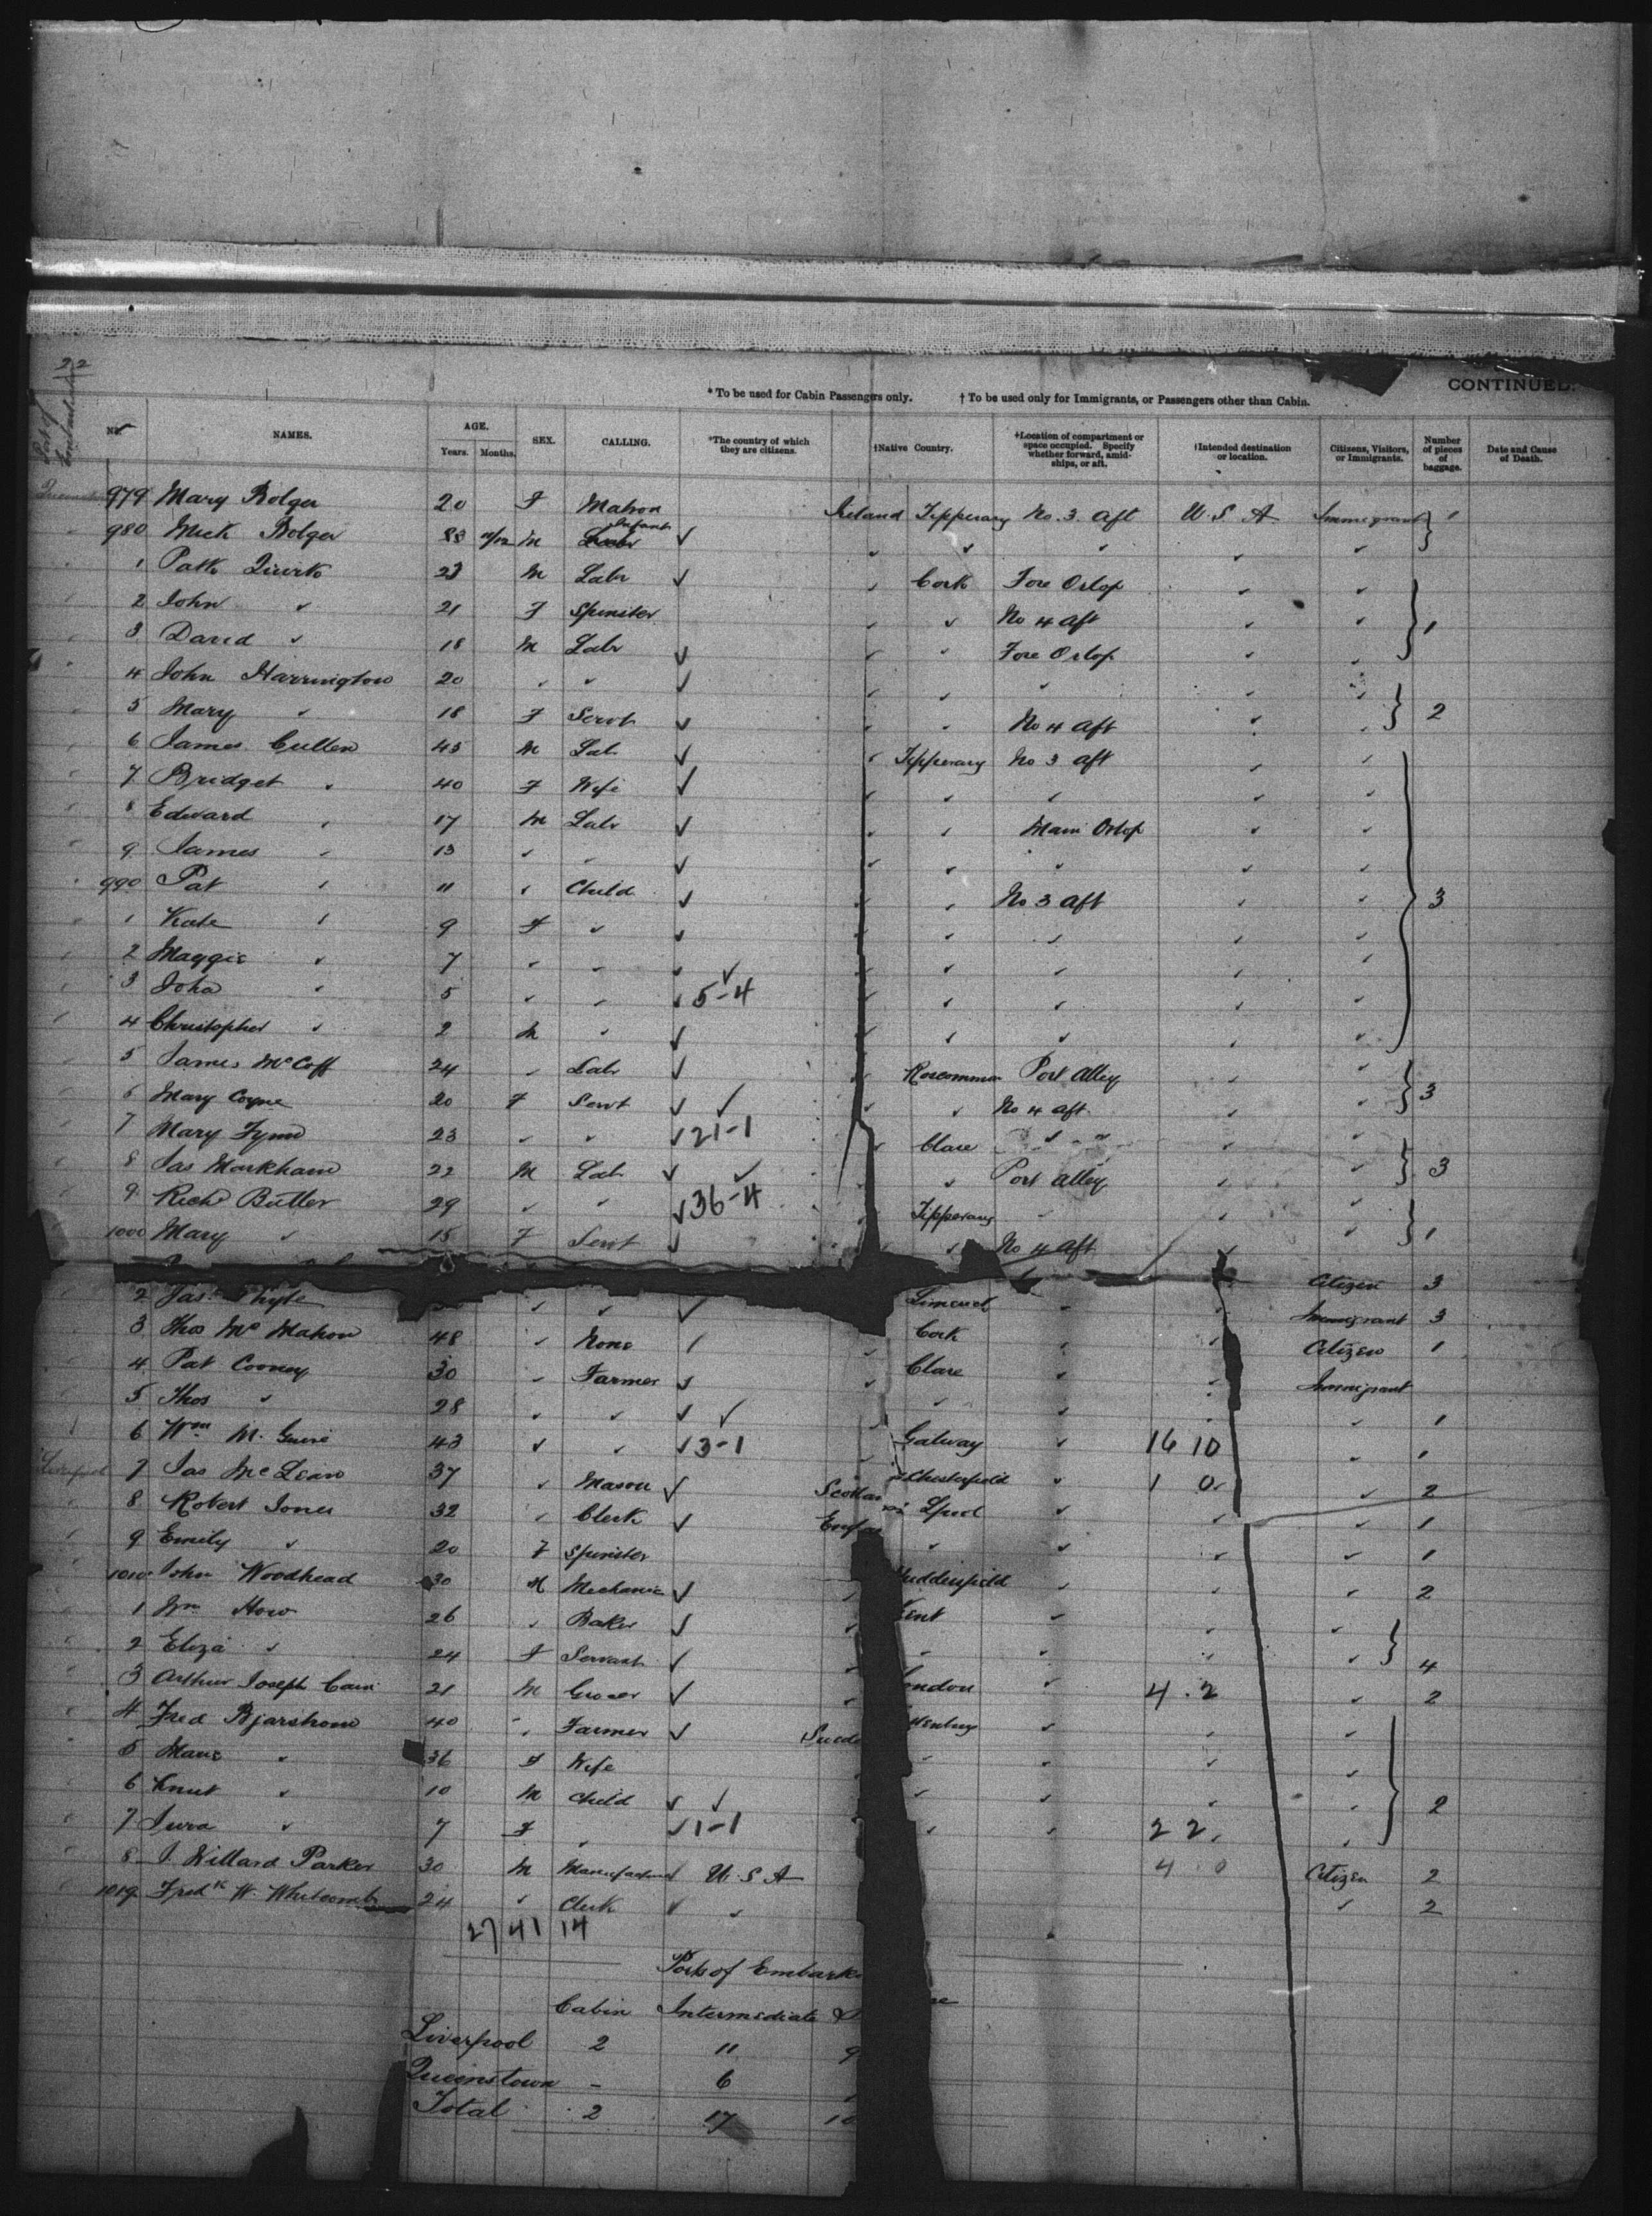 22
Port of Embarkation
CONTINUED.
* To be used for Cabin Passengers only. † To be used only for Immigrants, or Passengers other than Cabin.
No. NAMES. AGE. Years. Months. SEX. CALLING. *The country of which they are citizens. †Native Country. †Location of compartment or space occupied. Specify whether forward, amidships, or aft. †Intended destination or location. Citizens, Visitors, or Immigrants. Number of pieces of baggage. Date and Cause of Death.
979 Mary Bolger 20 F Matron Ireland Tipperary No. 3. aft U. S. A Immigrant 1
980 Mick Bolger 11/12 M Infant ✓
1 Patk Quirk 23 M Labr ✓ Cork Fore Orlop
2 John " 21 F Spinster " No 4 aft
3 David " 18 M Labr ✓ " Fore Orlop 1
4 John Harrington 20 " " ✓ " "
5 Mary " 18 F Servt ✓ " No 4 aft 2
6 James Cullen 45 M Labr ✓ Tipperary No 3 aft
7 Bridget " 40 F Wife ✓ " "
8 Edward " 17 M Labr ✓ " Main Orlop
9 James " 13 " " ✓ " "
990 Pat " 11 " Child ✓ " No 3 aft 3
1 Kate " 9 F " ✓ " "
2 Maggie " 7 " " ✓ " "
3 Joha " 5 " " ✓ 5-4 " "
4 Christopher " 2 M " ✓ " "
5 James McCoff 24 " Labr ✓ Roscommon Port Alley
6 Mary Coyne 20 F Servt ✓ " No 4 aft 3
7 Mary Fynn 23 " " ✓ 21-1 Clare " "
8 Jas Markham 22 M Labr ✓ " Port alley 3
9 Richd Butler 29 " " ✓ 36-4 Tipperary "
1000 Mary " 15 F Servt ✓ " No 4 aft 1
Citizen 3
2 Jas " " ✓ Limerick " Immigrant 3
3 Thos Mc Mahon 48 " None Cork " Citizen 1
4 Pat Cooney 30 " Farmer ✓ Clare " Immigrant
5 Thos " 28 " " ✓ " " " 1
6 Wm M. Guire 43 " " ✓ 3-1 Galway " 16 10 " 1
Liverpool 7 Jas McLean 37 " Mason ✓ Chesterfield " 1 0 " 2
8 Robert Jones 32 " Clerk ✓ Lpool " " 1
9 Emily " 20 F Spinster " " " 1
1010 John Woodhead 30 M Mechanic ✓ " " 2
1 Wm How 26 " Baker ✓ " "
2 Eliza " 24 F Servant ✓ " " " 4
3 Arthur Joseph 21 M Grocer ✓ " 4.2 " 2
4 Fred 40 " Farmer ✓ " "
5 Marie " 36 F Wife " " "
6 Knut " 10 M Child ✓ " " " 2
7 " 7 F " ✓ 1-1 " " 2 2 "
8 J. Willard Parker 30 M ✓ U. S. A 4.0 Citizen 2
1019 Fredk W. Whitcomb 24 " Clerk ✓ " " 2
27 41 14
Ports of
Cabin Intermediate
Liverpool 2 11 9
Queenstown - 6
Total 2 17